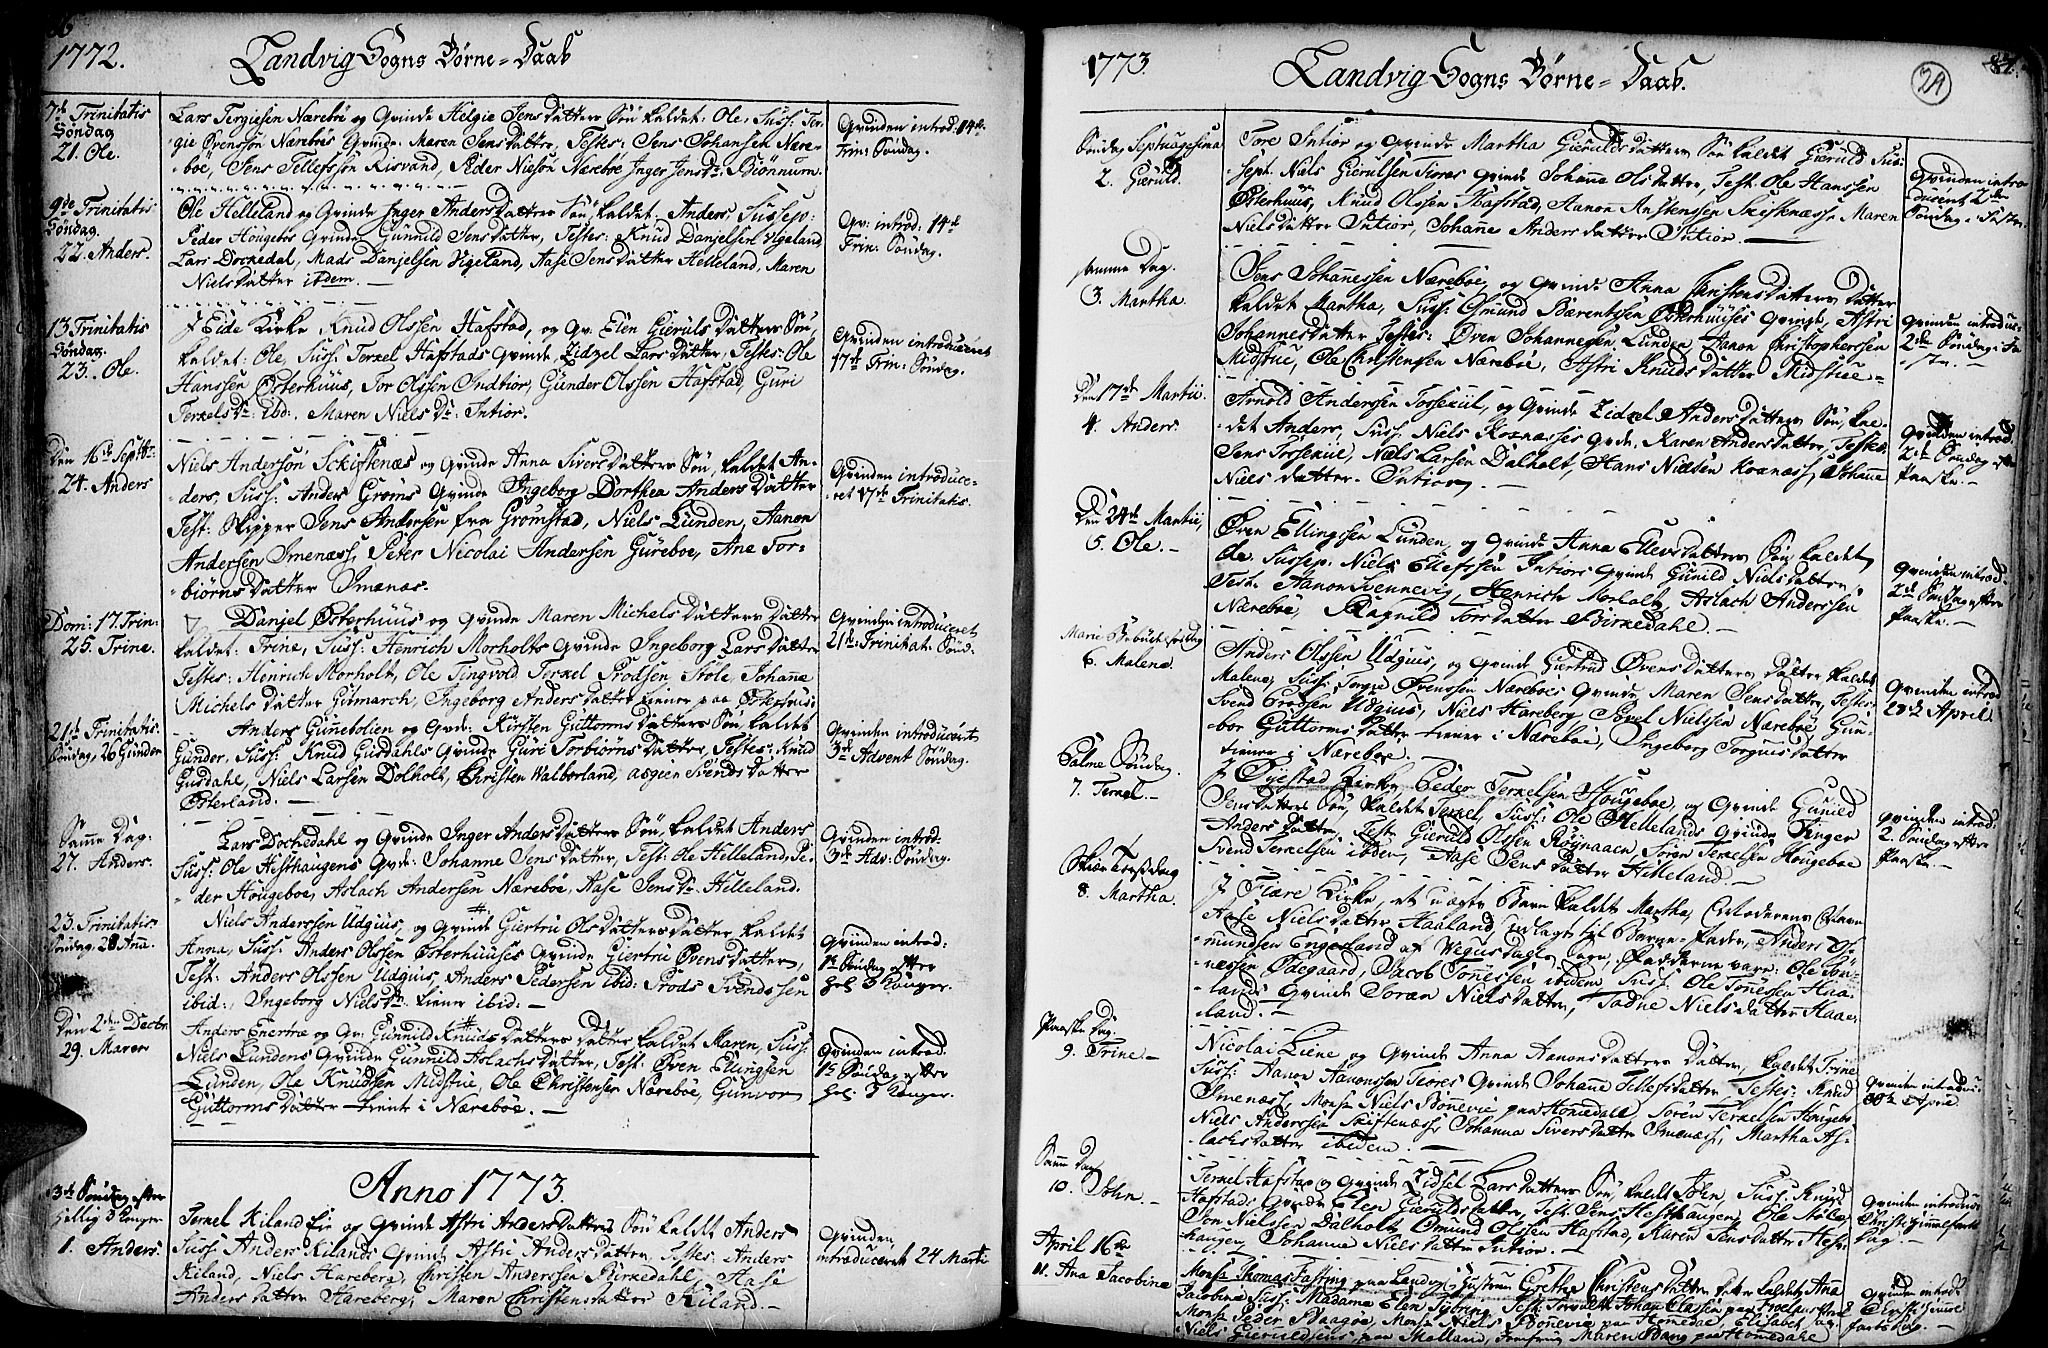 86
1772. Landvig Sogns Børne-Daab
7de Trinitatis
Søndag
21. Ole.
Lars Tergiesen Nærebö og Qvinde Helgie Jens Datters Sön kaldet: Ole, Sus: Ter-
gie Ovensson Nærebös Qvinde Maren Jens Datter, Testes: Jens Johansen Nære-
böe, Jens Tellefsön Risvand, Peder Nielsön Næreböe Inger Jens Dr. Biönnum.
Qvinden introd: 14de
Trin: Söndag.
9de Trinitatis
Söndag.
22. Anders.
Ole Helleland og Qvinde Inger Anders Datters Sön kaldet Anders, Suscep:
Peder Hougeboes Qvinde Gunnild Jens Datter, Testes: Knud Danjelsen Vigeland
Lars Dockedal, Mads Danjelsen Vigeland, Aase Jens Datter Helleland, Maren
Niels Datter ibidem.
Qv: introd: 14de
Trin: Söndag.
13 Trinitatis
Söndag.
23. Ole.
I Eide Kirke Knud Olssen Hafstad, og Qv. Elen Gieruls Datters Sön,
kaldet: Ole, Sus: Terkel Hafstads Qvinde Zidzel Lars Datter, Testes: Ole
Hanssen Østerhuus, Tor Olssen Indtior, Gunder Olssen Hafstad, Guri
Terkels Dr: ibd:, Maren Niels Dr: Intior.
Qvinden introduceret
17de Trin: Söndag.
Den 16de Septbr.
24. Anders
Niels Anderson Sckiftenæs og Qvinde Anna Sivers Datters Sön, kaldet An-
ders, Sus: Anders Groms Qvinde Ingeborg Dorthea Anders Datter
Test: Skipper Jens Andersen fra Gromstad, Niels Lunden, Aanon
Andersen Smenæss, Peter Nicolai Andersen Gureboe, Ane Tor-
biörns Datter Smenæs.
Qvinden introduce-
ret 17de Trinitatis.
Dom: 17. Trin:
25. Trine.
Danjel Østerhuus og Qvinde Maren Michels Datters Datter
kaldet: Trine, Sus: Henrich Morholts Qvinde Ingeborg Lars Datter
Testes: Henrich Morholt, Ole Tingvold Terkel Prodsen, Stöle, Johanne
Michels Datter Gitmarch, Ingeborg Anders Datter tiener paa
Qvinden introduceret
21de Trinitat: Sönd:
21de Trinitatis
Söndag, 26 Gunder
Anders Gunebolien og Qvde: Kirsten Guttorms Datters Sön, kaldet
Gunder, Sus: Knud Gusdahls Qvinde Guri Torbiörns Datter, Testes: Knud
Gusdahl, Niels Larsen Dolholt, Christen Walberland, Svends Datter
Østerland.
Qvinden introduceret
3de Advent Söndag.
Samme Dag.
27. Anders.
Lars Dockedahl og Qvinde Inger Anders Datters Sön, kaldet Anders
Sus: Ole Hesthaugens Qvde: Johanne Jens Datter, Test: Ole Helleland, Pe-
der Hougeboe, Aslach Andersen Næreboe, Aase Jens Dr. Helleland.
Qvinden introd:
3de Adv: Söndag.
23. Trinitatis
Söndag. 28 Ana.
Niels Anderssen Udguus, og Qvinde Giertru Ols Datters Datter kaldet
Anna, Sus: Anders Olssen Østerhuuses Qvinde Giertru Ovens Datter,
Test: Anders Olssen Udguus, Anders Pedersen ibid: Prods Svendssen
ibid:, Ingeborg Niels Dr. tiener ibid:
Qvinden introd:
1te Söndag efter
hel: 3 Konger.
Den 2den Decbr.
29. Maren
Anders Enertræ og Qv: Gunnild Knuds Datters Datter kaldet Maren, Sus:
Niels Lundens Qvinde Gunnild Aslachs Datter, Test: Oven Ellingsen
Lunden, Ole Knudsen Midstue, Ole Christensen Næreboe, Gunvor
Guttorms Datter tient i Næreboe.
Qvinden introd.
1te Söndag efter
hel: 3 Konger.
Anno 1773.
3de Söndag efter
hellig 3 Konger
1. Anders.
Terkel Kiland og Qvinde Astri Anders Datters Sön kaldet Anders
Sus: Anders Kilands Qvinde Astri Anders Datter, Testes: Anders
Kiland, Niels Hareberg, Christen Anderssen Birkedahl, Aase
Anders Datter Hareberg, Maren Christens Datter Kiland.
Qvinden
introduceret 24 Marti
1773. Landvig Sogns Børne-Daab.
87.
29
Söndag Septuagesima
2. Gieruld.
Tore Intior og Qvinde Martha Gierulds Datters Sön kaldet Gieruld Sus-
sept. Niels Gierulsen Tiores Qvinde Johanna Ols Datter, Test: Ole Hanssen
Østerhuus, Knud Olssen Hafstad, Aanon Anstenssen Skiftenæss Maren
Niels Datter Intior, Johanne Anders Datter Intior.
Qvinden intro-
duceret 2den
Söndag i Fasten
samme Dag.
3. Martha.
Jens Johannessen Næreboe, og Qvinde Anna Christens Datters Datter
kaldet Martha, Sus: Omund Bærentsen Østerhuuses Qvinde, Astri
Johannes Datter Testes: Oven Johannesen Lunden, Aanon Christophersen
Midstue, Ole Christensen Næreboe, Astri Knuds Datter Midstue
Qvinden introdu-
2den Söndag i Fa-
sten.
Den 17de Martii.
4. Anders.
Arnold Anderssen Torsekiil, og Qvinde Zidzel Anders Datters Sön, kal-
det Anders, Sus: Niels Roxnæsses Qvde. Karen Anders Datter, Testes:
Jens Torsekiil, Niels Larsen Dalholt, Hans Nielsen Roxnæss, Johanne
Niels Datter Intior.
Qvinden introd
2den Söndag efter
Paaske.
Den 24de Martii,
5. Ole.
Oven Ellingssen Lunden, og Qvinde Anna Ellevs Datters Sön kaldet
Ole, Sussep: Niels Ellefssen Intiors Qvinde Gunild Niels Datter,
Test: Aanon Svennevig, Henrich Morholt, Aslach Anderssen
Næreboe, Ragnild Tors Datter Birkedahl.
Qvinden introd.
2de Söndag efter
Paaske.
Mariæ Bebudelses Dag
6. Malene.
Anders Olssen Udguus, og Qvinde Giertrud Ovens Datters Datter kaldet
Malene, Sus: Torgie Ovenssen Næreboes Qvinde Maren Jens Datter, Testes:
Svend Prodsen Udguus, Niels Hareberg, Torel Nielsen Næreboe, Gun-
bor Guttorms Datter tiener i Næreboe, Ingeborg Torgius Datter
tiener i Næreboe.
Qvinden introd
April
Palme Söndag.
7. Terkel.
I Öyestad Kirke Peder Terkelsen Hougeboe, og Qvinde Gunild
Jens Datters Sön, kaldet Terkel, Sus: Ole Hellelands Qvinde Inger
Anders Datter, Test: Gieruld Olssen Röynaaen, Sören Terkelsen Hougeboe
Svend Terkelsen ibidem, Aase Jens Datter Hilleland.
Qvinden introd.
2. Söndag efter
Paaske.
Skiær Torsdag
8. Martha.
I Fiære Kirke, et uægte Barn kaldet Martha, Moderens Navn
Aase Niels Datter Haaland, udlagt til Barne-Fader, Anders Os-
mundsen Engesland af Vegusdahls Sogn, Fadderne vare: Ole Tön-
nessen Ødegaard, Jacob Tönessen ibidem, Sus: Ole Tönesen Haa-
lands Qvinde Soran Niels Datter, Tadne Niels Datter Haae-
land.
Paaske Dag.
9. Trine
Nicolai Liene og Qvinde Anna Aanons Datters Datter, kaldet Trine
Sus: Aanon Aanonssen Teores Qvinde Johane Tellefs Datter Testes: Knud
Smenæss, Monsr Niels Bonnevie paa Homedahl, Sören Terkelsen Hougeboe
Niels Anderssen Skiftenæss Johanna Sivers Datter Smenæss, Martha As-
lachs Datter ibidem.
Qvinden introdu:
April.
Samme Dag
10. John.
Terkel Hafstad og Qvinde Zidsel Lars Datters Sön, kaldet John, Sus: Knud
Hafstads Qvinde Elen Gierulds Datter, Test: Jens Hesthaugen, Ole
Jon Nielssen Dalholt Omund Olssen Hafstad, Karen Jens Datter Hest-
haugen, Johanne Niels Datter Intior.
Qvinden introdu:
Christi Himmelfarts
Dag.
April 16de
11. Ana Jacobina
Monsr Thomas Fasting paa Landvig, Hustrue Grethe Christens Datters Datter kaldet Anna
Jacobina Sus: Madame Elen Tybring, Test: Johan Classen paa
Monsr Peder Baagøe, Monsr Niels Bonnevie paa Homedal, Elisabet
Niels Gierulds paa Molland, Jomfrue Maren Bang paa Homedahl
Qvinden introd
Christi Himmel
farts Dag.